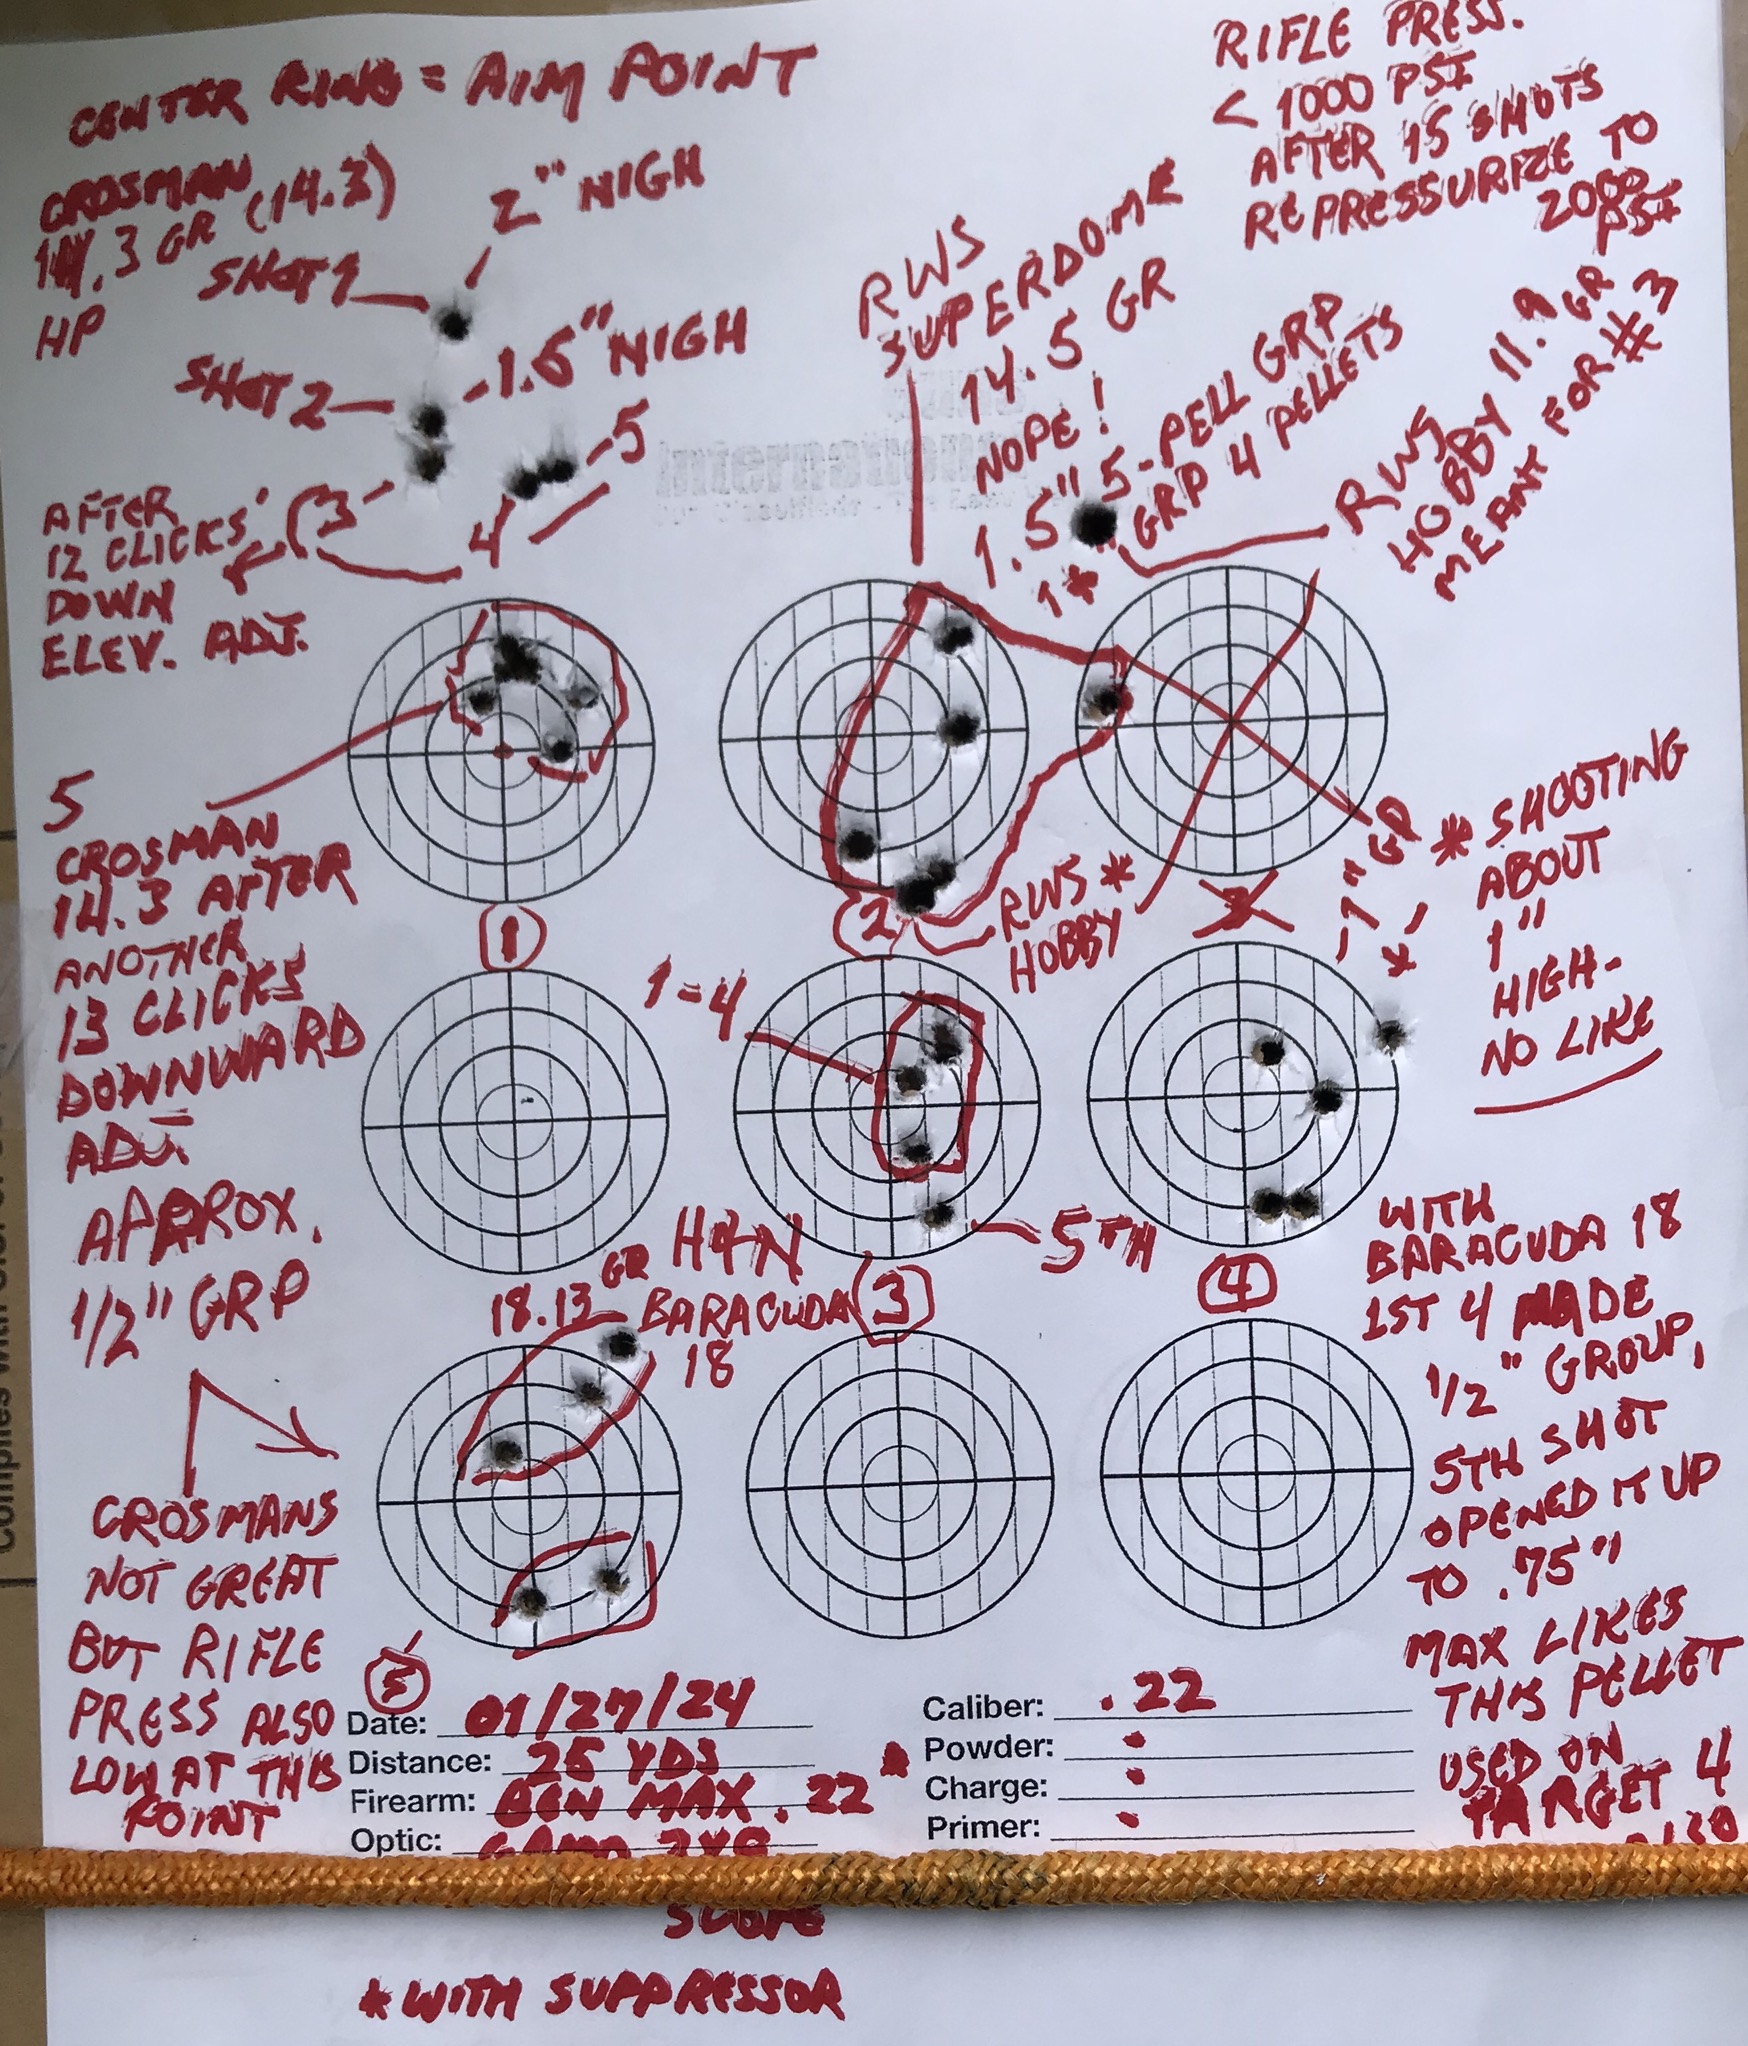 CENTER RING = AIM POINT
CROSMAN
14.3 GR (14.3)
HP
SHOT 1
2" HIGH
SHOT 2
1.5" HIGH
3
4
5
AFTER
12 CLICKS
DOWN
ELEV. ADJ.
RIFLE PRESS.
< 1000 PSI
AFTER 15 SHOTS
REPRESSURIZE TO
2000
PSI
RWS
SUPERDOME
14.5 GR
NOPE!
1.5" 5-PELL GRP
1" GRP 4 PELLETS
*
RWS
HOBBY 11.9 GR
MEANT FOR #3
5
CROSMAN
14.3 AFTER
ANOTHER
13 CLICKS
DOWNWARD
ADJ.
APPROX.
1/2" GRP
1
2
3
RWS *
HOBBY
1" GP
*
* SHOOTING
ABOUT
1"
HIGH-
NO LIKE
1=4
5TH
18.13 GR H&N
BARACUDA
18
3
4
WITH
BARACUDA 18
1ST 4 MADE
1/2" GROUP,
5TH SHOT
OPENED IT UP
TO .75"
MAX LIKES
THIS PELLET
USED ON
TARGET 4
ALSO
CROSMANS
NOT GREAT
BUT RIFLE
PRESS ALSO
LOW AT THIS
POINT
5
Date: 01/27/24
Distance: 25 YDS
Firearm: BEN MAX .22 *
Optic:
Caliber: .22
Powder:
Charge:
Primer:
SCOPE
* WITH SUPPRESSOR